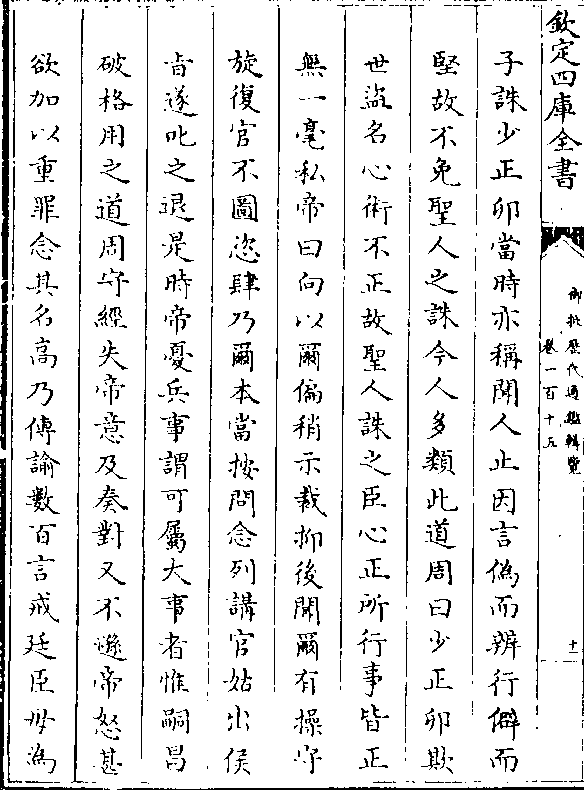 欽定四庫全書
御批歷代通鑑輯覽
卷一百十五
十一
子誅少正卯當時亦稱聞人止因言偽而辨行僻而
堅故不免聖人之誅今人多類此道周曰少正卯欺
世盜名心術不正故聖人誅之臣心正所行事皆正
無一毫私帝曰向以爾偏稍示裁抑後聞爾有操守
旋復官不圖恣肆乃爾本當按問念列講官姑出俟
旨遂叱之退是時帝憂兵事謂可屬大事者惟嗣昌
破格用之道周守經失帝意及奏對又不遜帝怒甚
欲加以重罪念其名高乃傳諭數百言戒廷臣毋為